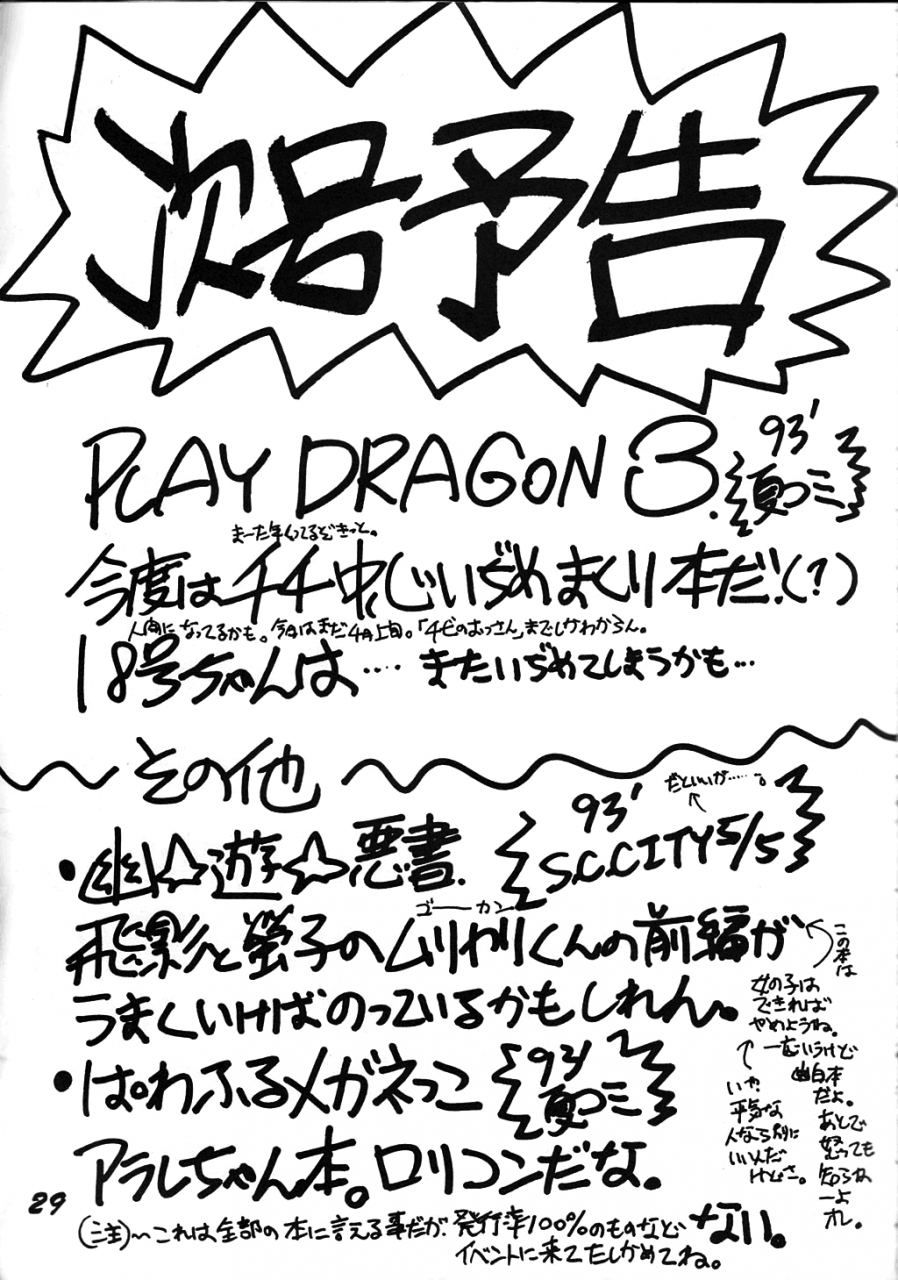 次号予告
PLAY DRAGON 3. 93' 夏コミ
まーた年くってるぞきっと。
今度はチチ中心いぢめまくり本だ!(?)
人間になってるかも。今日はまだ4月上旬。「チビのおっさん」までしかわからん。
18号ちゃんは…. またいぢめてしまうかも…
その他
だといいが……。
・幽☆遊☆悪書. 93' S.C.CITY5/5
ゴーカン
飛影と螢子のムリヤリくんの前編が
うまくいけばのっているかもしれん。
この本は
女の子は
できれば
やめようね。
一応いうけど
幽白本
だよ。
あとで
怒っても
知らね
ーよ
オレ。
いや、
平気な
人なら別に
いいんだ
けどさ。
・ぱわふるメガネっこ 93' 夏コミ
アラレちゃん本。ロリコンだな。
(注)〜これは全部の本に言える事だが、発行率100%のものなど ない。
イベントに来てたしかめてね。
29